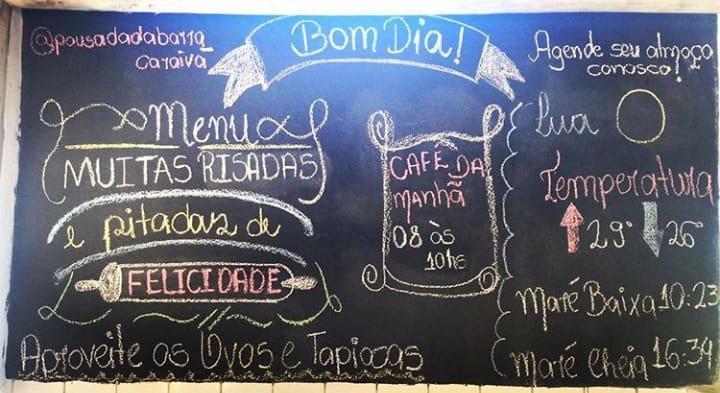 @pousadadabarra_
caraiva
Bom Dia!
Agende seu almoço
conosco!
Menu
MUITAS RISADAS
e pitadas de
FELICIDADE
Aproveite os Ovos e Tapiocas
CAFÉ DA
Manhã
08 às
10hs
Lua
Temperatura
29° 26°
Maré Baixa 10:23
Maré cheia 16:39